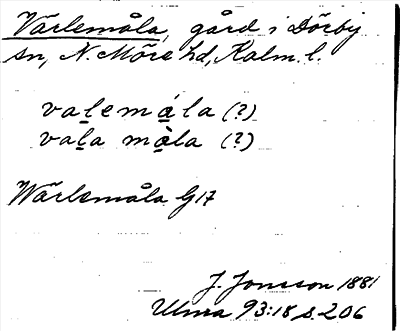 Värlemåla, gård i Dörby
sn, N. Möre hd, Kalm. l.
valemåla (?)
vala måla (?)
Wärlemåla G17
J. Jonsson 1881
Ulma 93:18 s. 206